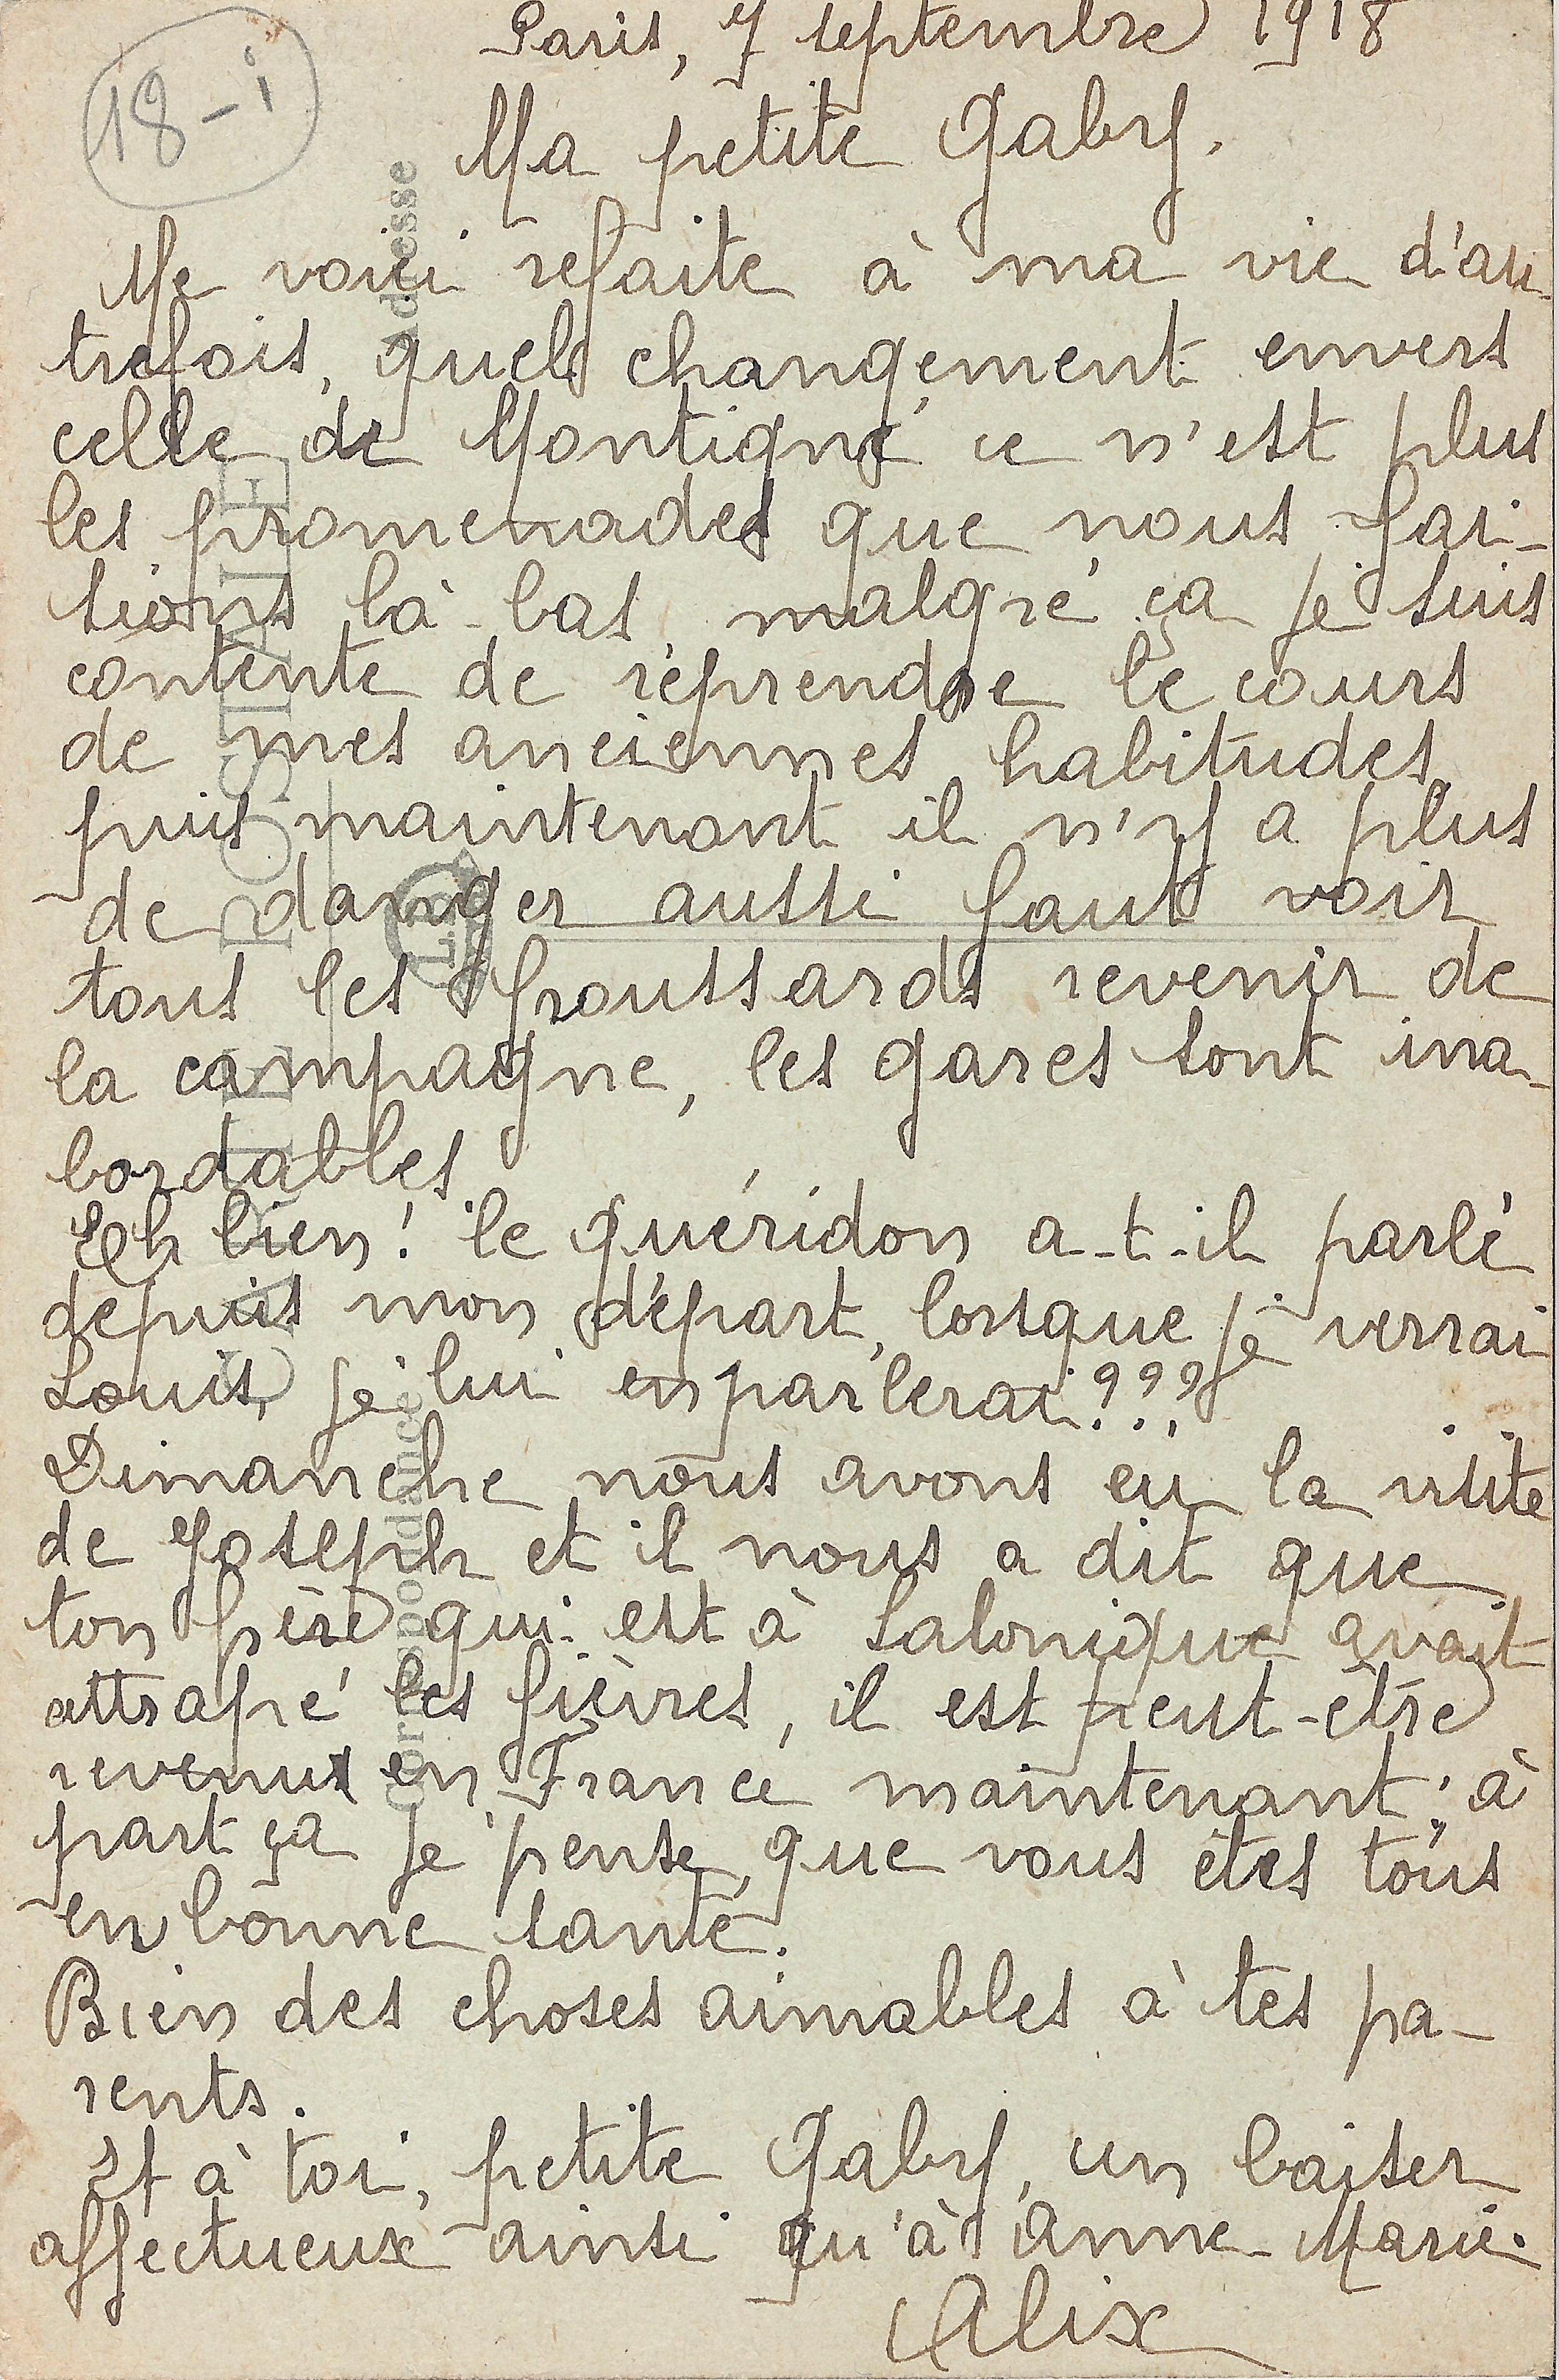 18-i
Paris, 7 septembre 1918
Ma petite Gaby.
Me voici refaite à ma vie d'au-
trefois, quels changement envers
celle de Montigné ce n'est plus
les promenades que nous fai-
sions là-bas, malgré ça je suis
contente de reprendre le cours
de mes anciennes habitudes,
puis maintenant il n'y a plus
de danger aussi faut voir
tous les froussards revenir de
la campagne, les gares sont ina-
bordables.
Eh bien! le guéridon a-t-il parlé
depuis mon départ, lorsque je verrai
Louis, je lui en parlerai???
Dimanche nous avons eu la visite
de Joseph et il nous a dit que
ton frère qui est à Salonique avait
attrapé les fièvres, il est peut-être
revenu en France maintenant; à
part ça je pense que vous êtes tous
en bonne santé.
Bien des choses aimables à tes pa-
rents.
Et à toi, petite Gaby, un baiser
affectueux ainsi qu'à Anne-Marie.
Alix
CARTE POSTALE
Correspondance
Adresse